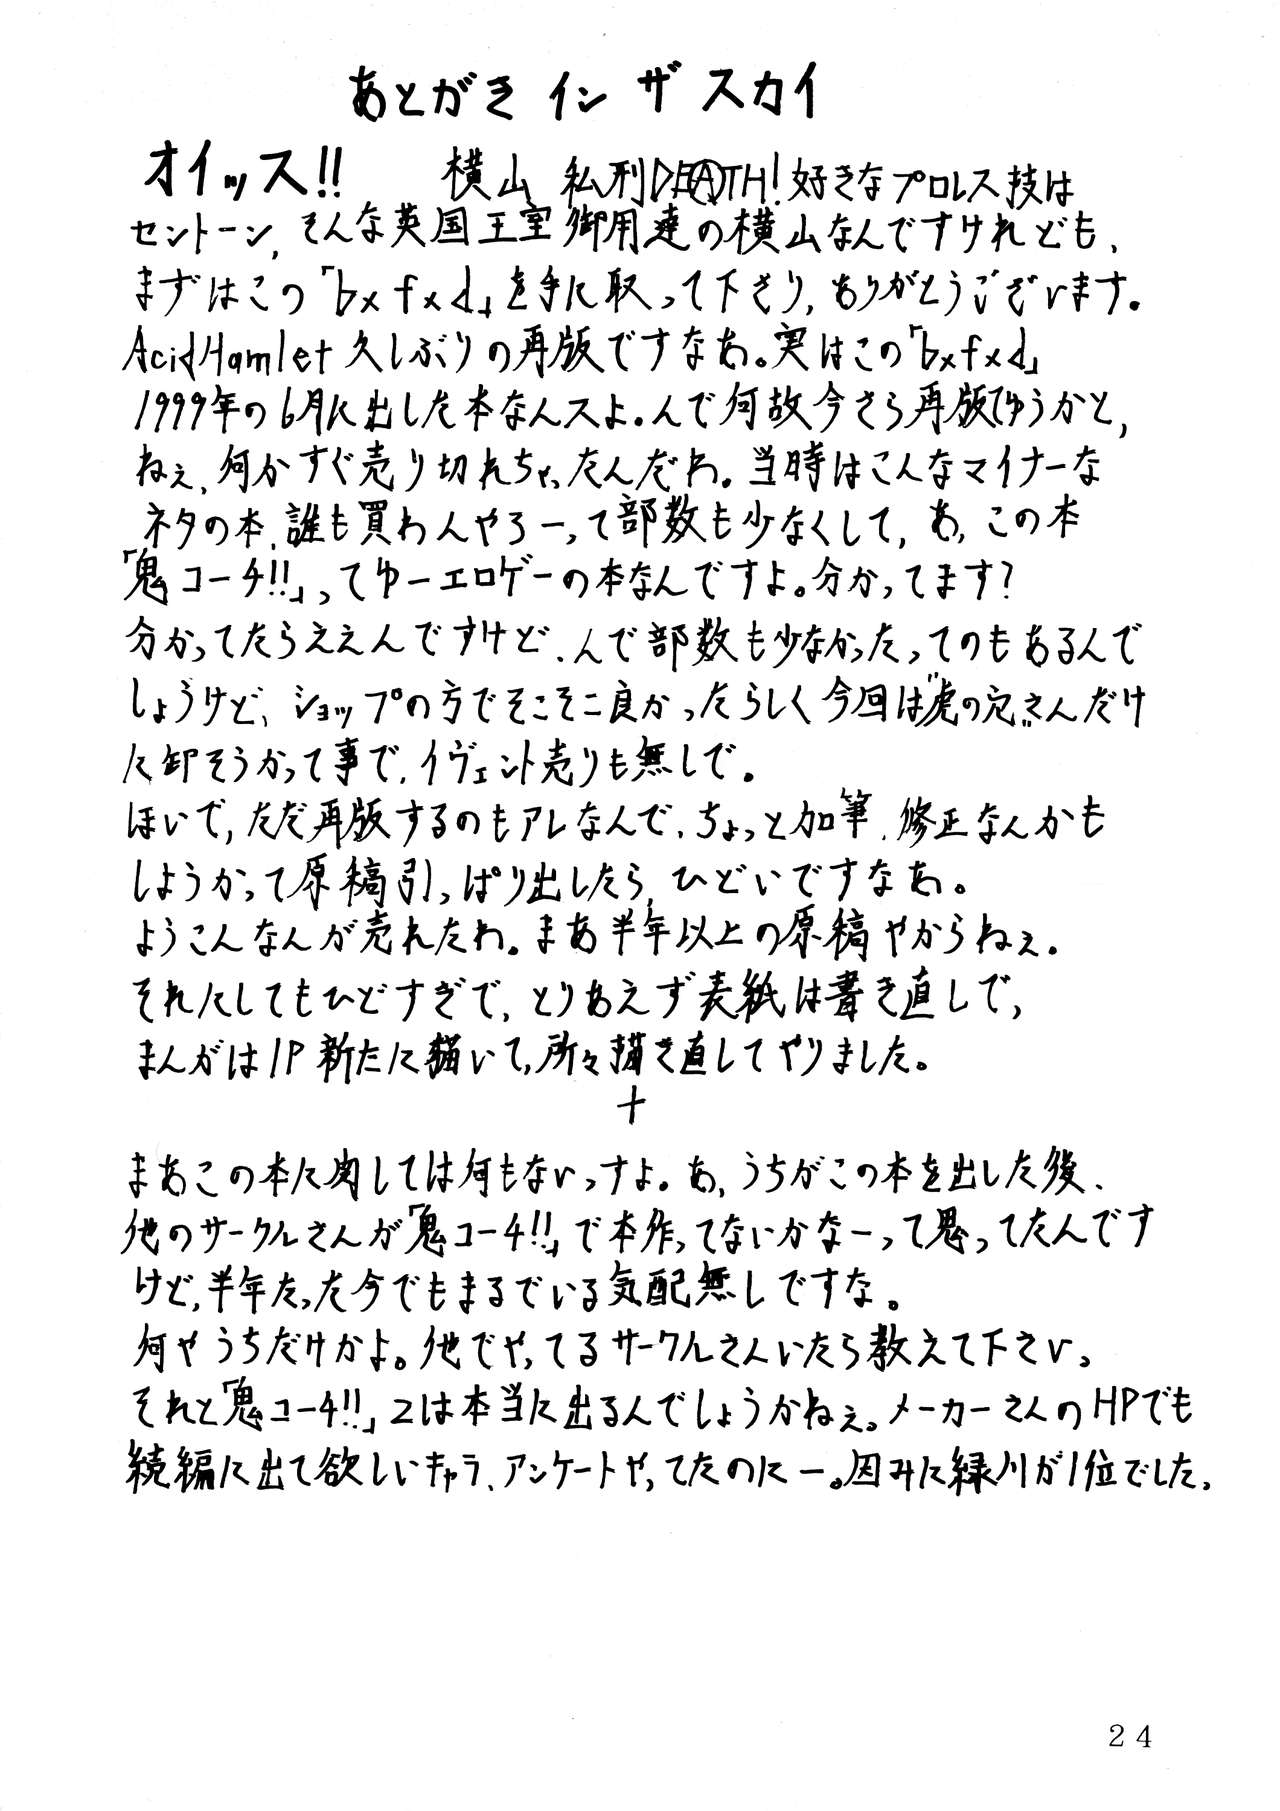 あとがき イン ザ スカイ
オイッス!! 横山 私刑DEATH!好きなプロレス技は
セントーン,そんな英国王室御用達の横山なんですけれども、
まずはこの「b×f×d」を手に取って下さり,ありがとうございます。
AcidHamlet久しぶりの再版ですなあ。実はこの「b×f×d」
1999年の6月に出した本なんスよ。んで何故今さら再版てゆうかと,
ねぇ、何かすぐ売り切れちゃったんだわ。当時はこんなマイナーな
ネタの本、誰も買わんやろーって部数も少なくして,あ,この本
「鬼コーチ!!」ってゆーエロゲーの本なんですよ。分かってます?
分かってたらええんですけど、んで部数も少なかったってのもあるんで
しょうけど、ショップの方でそこそこ良かったらしく今回は"虎の穴"さんだけ
に卸そうかって事で、イヴェント売りも無しで。
ほいで,ただ再版するのもアレなんで、ちょっと加筆、修正なんかも
しようかって原稿引っぱり出したら,ひどいですなあ。
ようこんなんが売れたわ。まあ半年以上の原稿やからねぇ。
それにしてもひどすぎで,とりあえず表紙は書き直しで,
まんがは1P新たに描いて,所々描き直してやりました。
+
まあこの本に関しては何もないっすよ。あ,うちがこの本を出した後、
他のサークルさんが「鬼コーチ!!」で本作ってないかなーって思ってたんです
けど,半年たった今でもまるでいる気配無しですな。
何やうちだけかよ。他でやってるサークルさんいたら教えて下さい。
それと「鬼コーチ!!」2は本当に出るんでしょうかねぇ。メーカーさんのHPでも
続編に出て欲しいキャラ、アンケートやってたのにー。因みに緑川が1位でした。
24